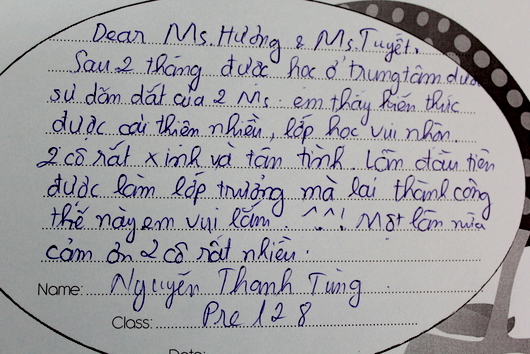 Dear Ms. Hương & Ms. Tuyết.
Sau 2 tháng được học ở trung tâm dưới
sự dẫn dắt của 2 Ms. em thấy kiến thức
được cải thiện nhiều, lớp học vui nhộn.
2 cô rất xinh và tận tình. Lần đầu tiên
được làm lớp trưởng mà lại thành công
thế này em vui lắm. ^^! Một lần nữa
cảm ơn 2 cô rất nhiều.
Name: Nguyễn Thanh Tùng
Class: Pre 128
Date: